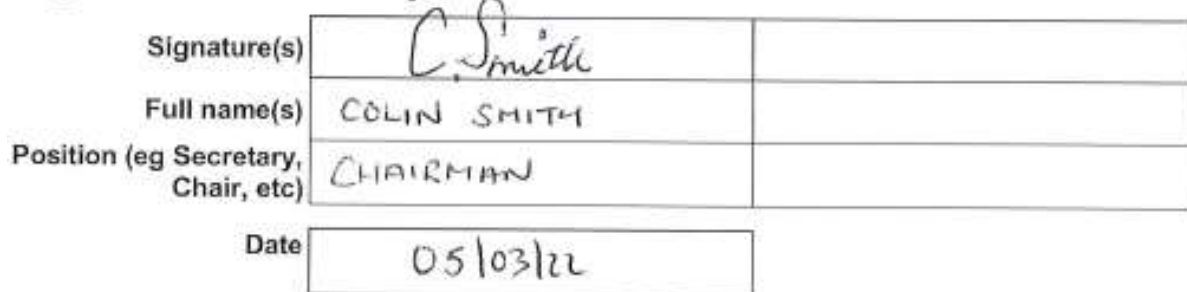 Signature(s) C. Smith
Full name(s) COLIN SMITH
Position (eg Secretary,
Chair, etc) CHAIRMAN
Date 05/03/22